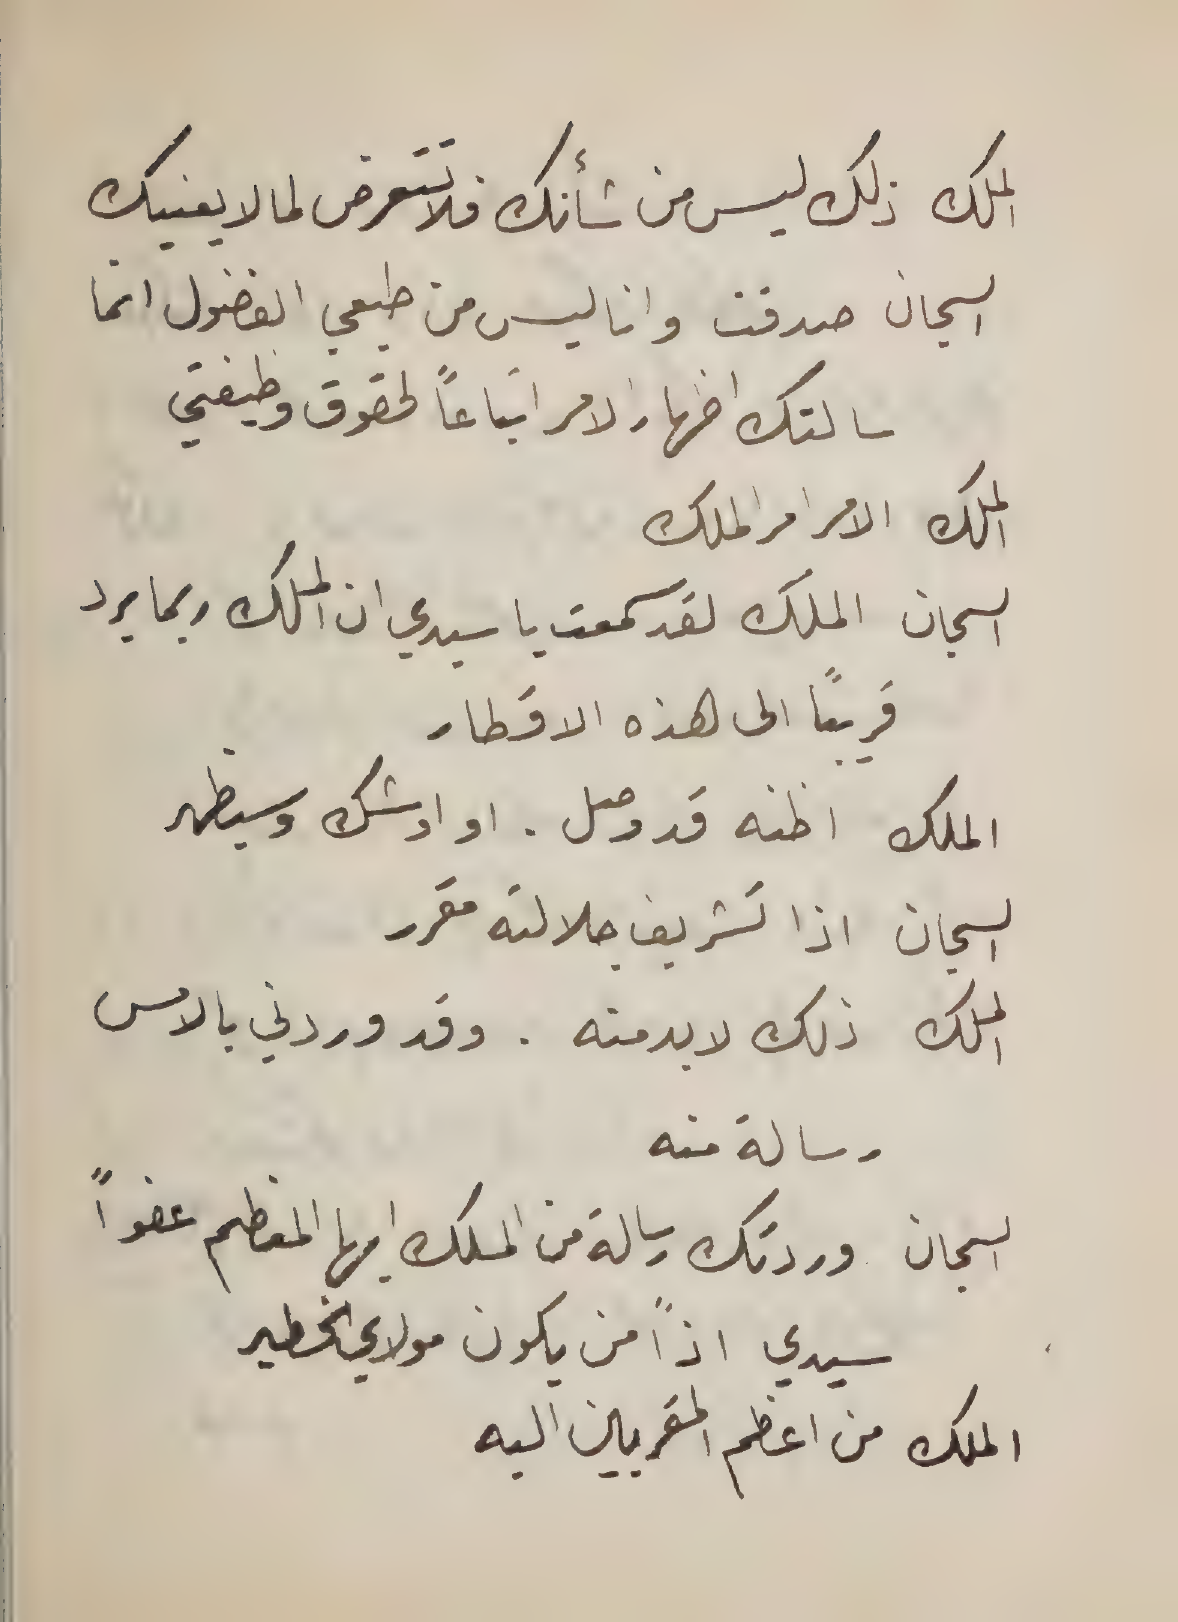 الملك ذلك ليس من شأنك فلا تتعرض لما لا يعنيك
السجان صدقت وانا ليس من طبعي الفضول انما
سالتك اظهار الامر اتباعاً لحقوق وظيفتي
الملك الامر امر الملك
السجان الملك لقد سمعت يا سيدي ان الملك ربما يرد
قريبًا الى هذه الاقطار
الملك اظنه قد وصل . او اوشك وسيظهر
السجان اذا تشريف جلالته مقرر
الملك ذلك لا بد منه . وقد وردني بالامس
رسالة منه
السجان وردتك رسالة من الملك ايها المعظم عفواً
سيدي اذاً من يكون مولاي الخطير
الملك من اعظم المقربين اليه